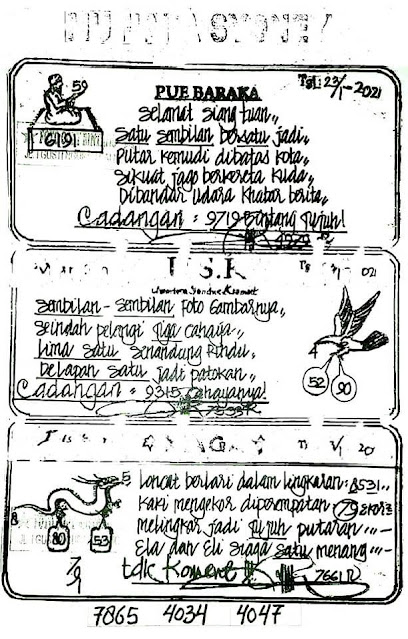 59
Tgl: 23/1-2021
PUE BARAKA
6191
Selamat siang tuan,,
Satu sembilan bersatu jadi,,
Putar kemudi dibatas kota,,
Sikuat jago berkereta kuda,,
Dibandar udara khabar berita,,
Cadangan = 9719 Bintang tujuh!
Sembilan - sembilan foto Gambarnya,,
Seindah pelangi tiga cahaya,,
Lima satu senandung rindu,,
Delapan satu jadi patokan,,
Cadangan = 9315 Cahayanya!
7533
4
52
90
5
8
80
53
7/9
Loncat berlari dalam lingkaran: 8531..
Kaki mengekor diperempatan 79 ekor2
Melingkar jadi tujuh putaran
Ela dan Eli siaga satu menang
tdk Komentar
7661 R
7865 4034 4047